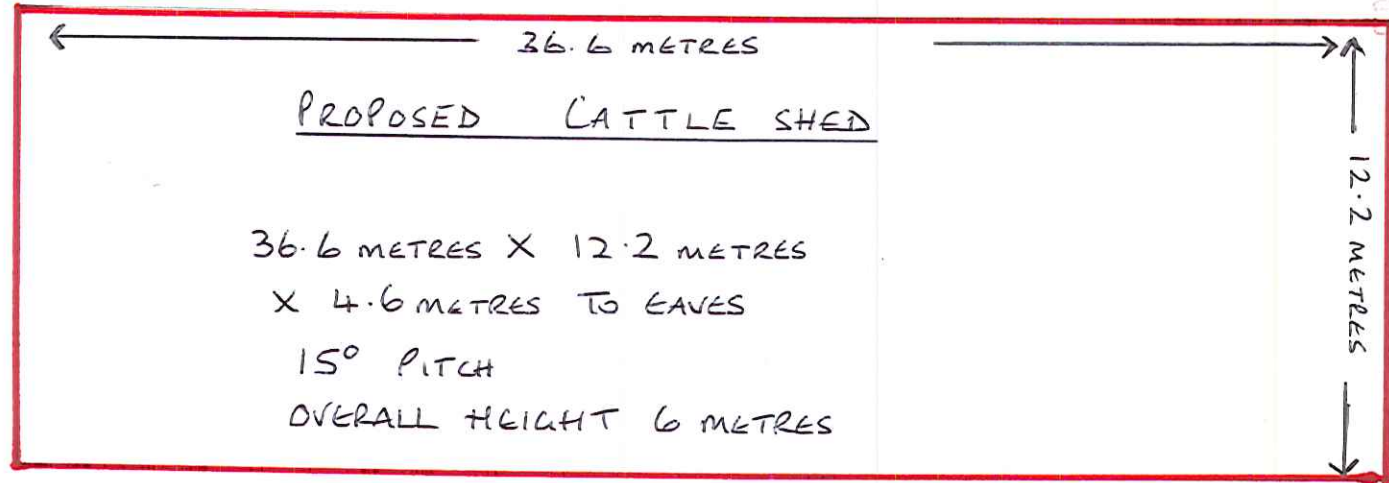 36.6 METRES
PROPOSED CATTLE SHED
36.6 METRES X 12.2 METRES
X 4.6 METRES TO EAVES
15° PITCH
OVERALL HEIGHT 6 METRES
12.2 METRES